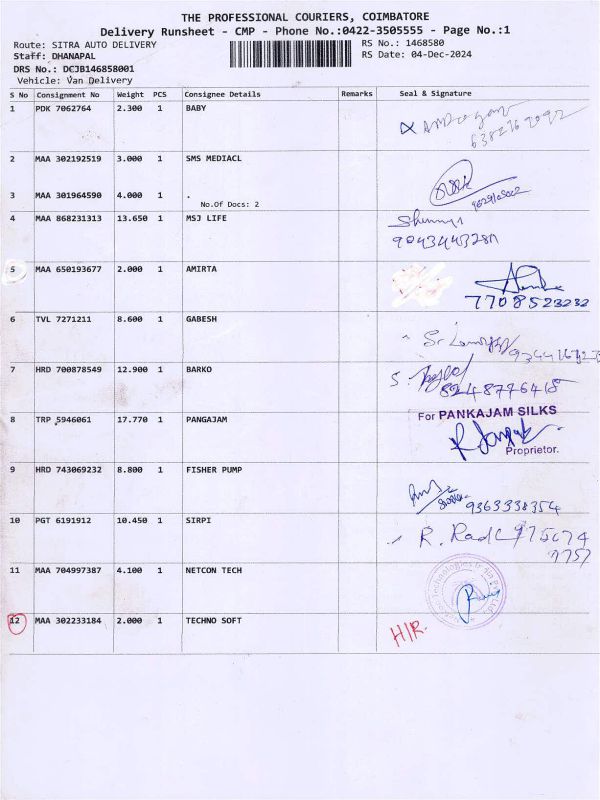 THE PROFESSIONAL COURIERS, COIMBATORE
Delivery Runsheet - CMP - Phone No.:0422-3505555 - Page No.:1
Route: SITRA AUTO DELIVERY
RS No.: 1468580
Staff: DHANAPAL
RS Date: 04-Dec-2024
DRS No.: DCJB146858001
Vehicle: Van Delivery
S No Consignment No Weight PCS Consignee Details Remarks Seal & Signature
1 PDK 7062764 2.300 1 BABY
2 MAA 302192519 3.000 1 SMS MEDIACL
3 MAA 301964590 4.000 1 .
No.Of Docs: 2
4 MAA 868231313 13.650 1 MSJ LIFE
5 MAA 650193677 2.000 1 AMIRTA
7708523232
6 TVL 7271211 8.600 1 GABESH
7 HRD 700878549 12.900 1 BARKO
8248776415
8 TRP 5946061 17.770 1 PANGAJAM
For PANKAJAM SILKS
Proprietor.
9 HRD 743069232 8.800 1 FISHER PUMP
9363338354
10 PGT 6191912 10.450 1 SIRPI
11 MAA 704997387 4.100 1 NETCON TECH
12 MAA 302233184 2.000 1 TECHNO SOFT
H/R.